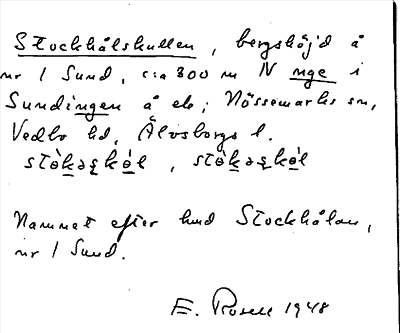 Stockhålskullen, bergshöjd å
nr 1 Sund, c:a 300 m N nge i
Sundingen å ek; Nössemarks sn,
Vedbo hd, Älvsborgs l.
Namnet efter hmd Stockhålan,
nr 1 Sund.
E. Rosell 1948